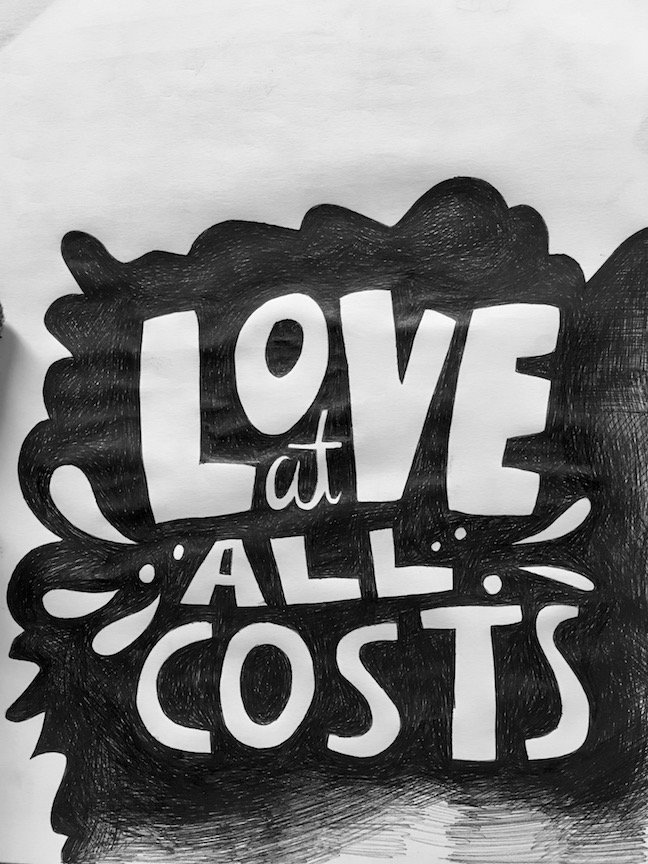 LOVE
at
ALL
COSTS